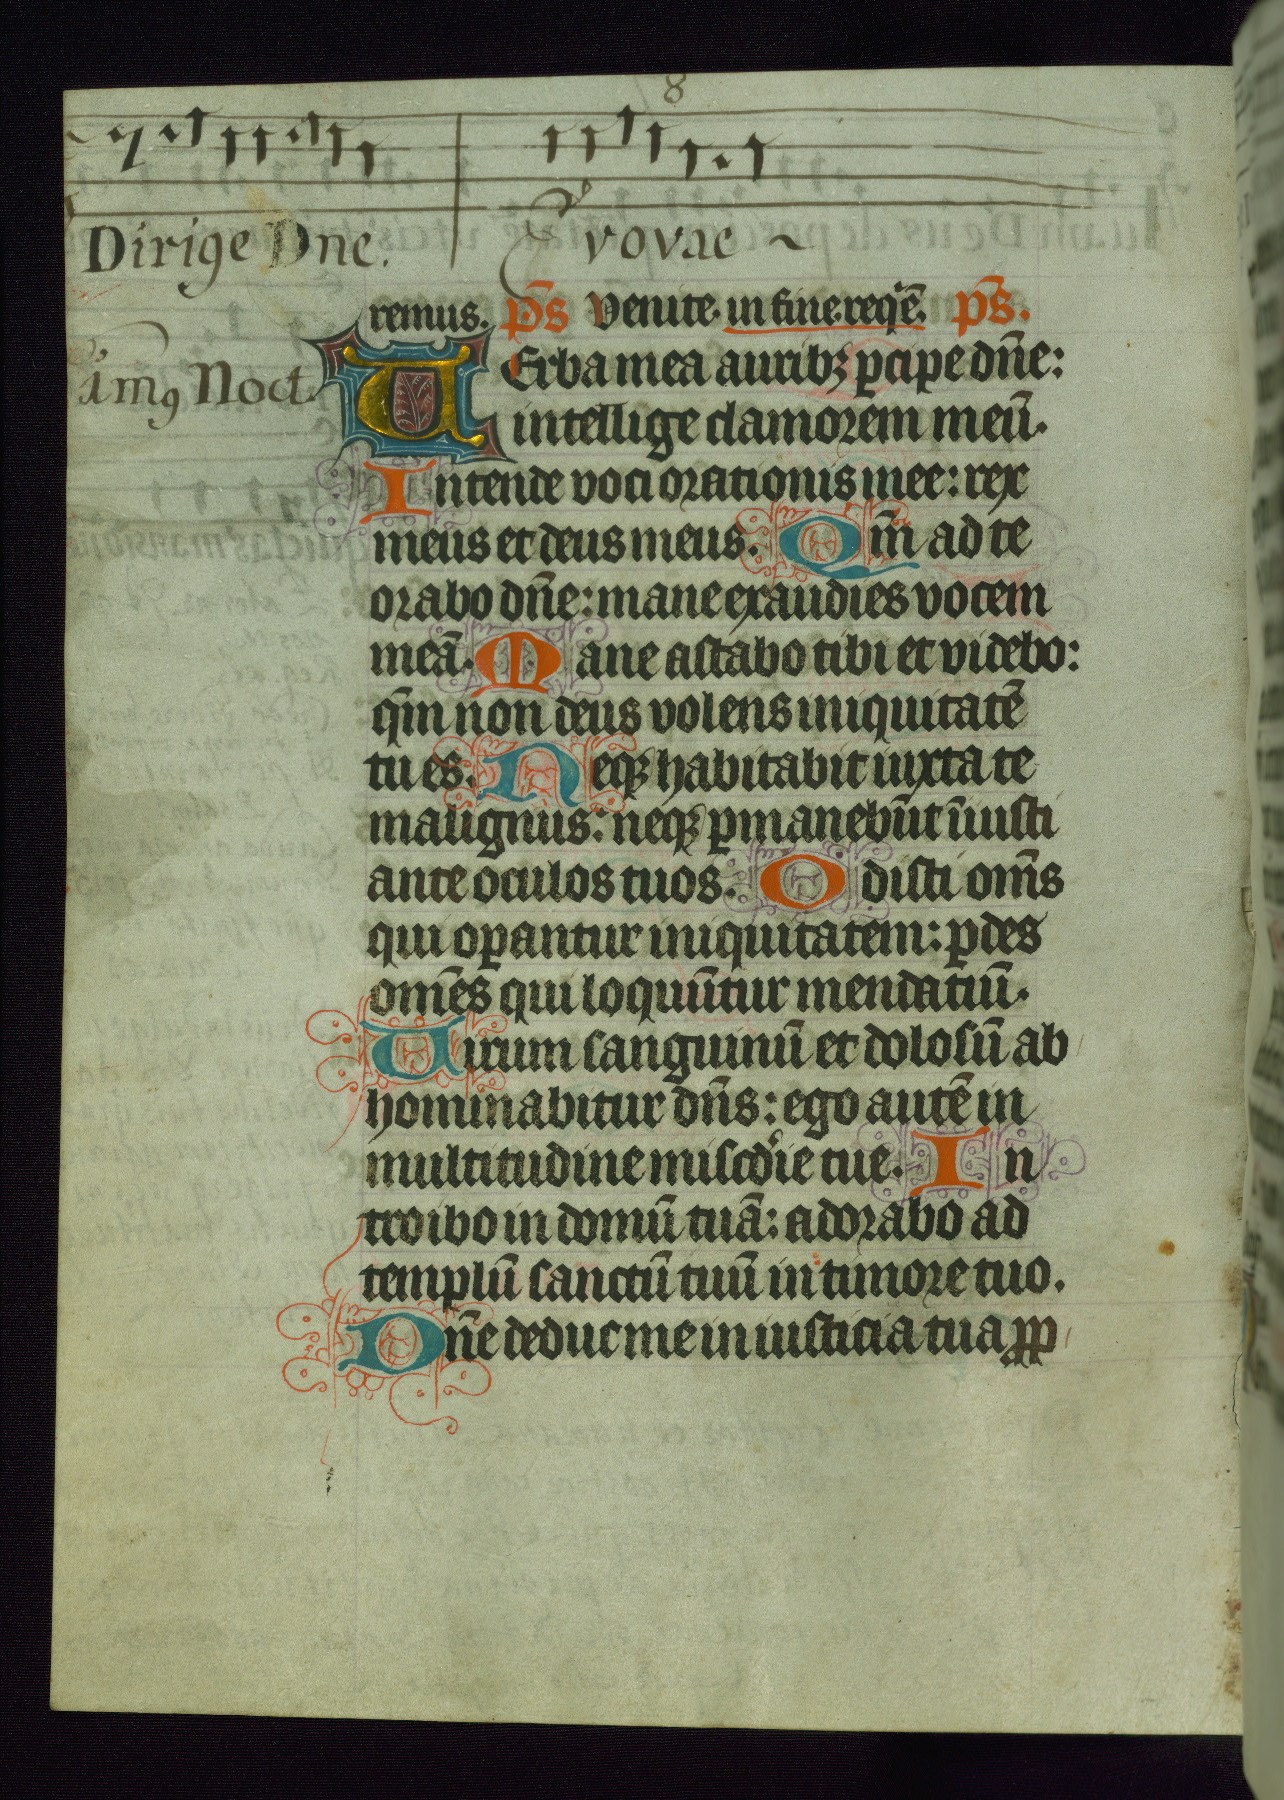 8
Dirige Dne. vovae ~
remus. p̄s Venite in fine. req̄e. p̄s.
im9 Noct.
UErba mea aurib; ꝑcipe dn̄e:
intellige clamorem meū.
Intende voci orationis mee: rex
meus et deus meus. Qm̄ ad te
orabo dn̄e: mane exaudies vocem
meā. Mane astabo tibi et videbo:
qm̄ non deus volens iniquitatē
tu es. Neq; habitabit iuxta te
malignus: neq; ꝑmanebūt iniusti
ante oculos tuos. Odisti om̄s
qui oꝑantur iniquitatem: ꝑdes
om̄es qui loquūtur mendatiū.
Uirum sanguinū et dolosū ab
hominabitur dn̄s: ego autē in
multitudine misc̄die tue. In
troibo in domū tuā: adorabo ad
templū sanctū tuū in timore tuo.
Dn̄e deduc me in iusticia tua ꝓp